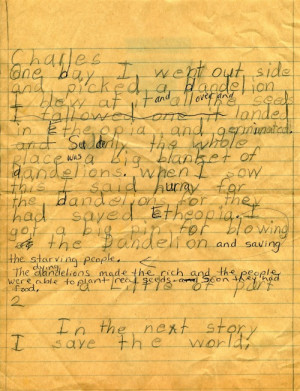 Charles
One day I went out side
and picked a dandelion
I blew at it and all over and the seeds
I followed one it landed
in Etheopia, and germinated.
and Sudanly the whole
place was a big blanket of
dandelions. When I sow
this I said hurray for
the dandelions for they
had saved Etheopia. I
got a big pin for blowing
the Dandelion and saving
the starving people.
The dying dandelions made the rich and the people
were able to plant real seeds. and Soon they had
food.
a Little of part
2
In the next story
I save the world.